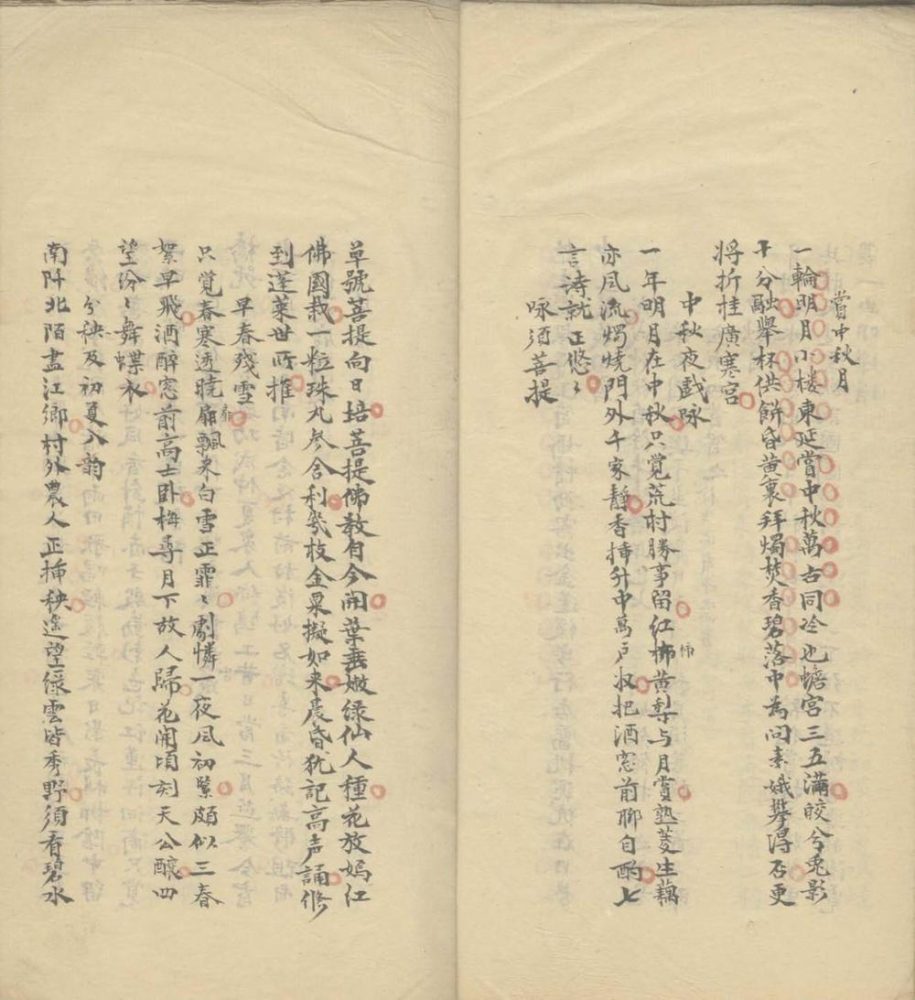 賞中秋月
一輪明月小樓東延賞中秋萬古同冷也蟾宮三五滿皎兮兎影
十分融舉杯供餅昏黃裏拜燭焚香碧落中為问素娥攀得否更
将折桂廣寒宮
中秋夜戲咏
一年明月在中秋只覺荒村勝事留红柿黄梨与月賞熟菱生藕
柿
亦風流燭燒門外千家静香揷升中萬户收把酒窓前聊自酌七
言诗就正悠〻
咏須菩提
草號菩提向日培菩提佛教自今開葉垂嫩绿仙人種花放嫣江
佛國栽一粒珠丸参舍利幾枝金果擬如来晨昏犹記高声誦修
到蓬莱世所推
早春殘雪
只覺春寒透曉扉飄来白雪正霏〻劇憐一夜風初緊頗似三春
扉
絮早飛酒醉窓前高士卧梅尋月下故人歸花開頃刻天公釀四
望纷〻舞蝶衣
分秧及初夏入韵
南阡北陌盡江鄉村外農人正揷秧遙望绿雲皆秀野須看碧水